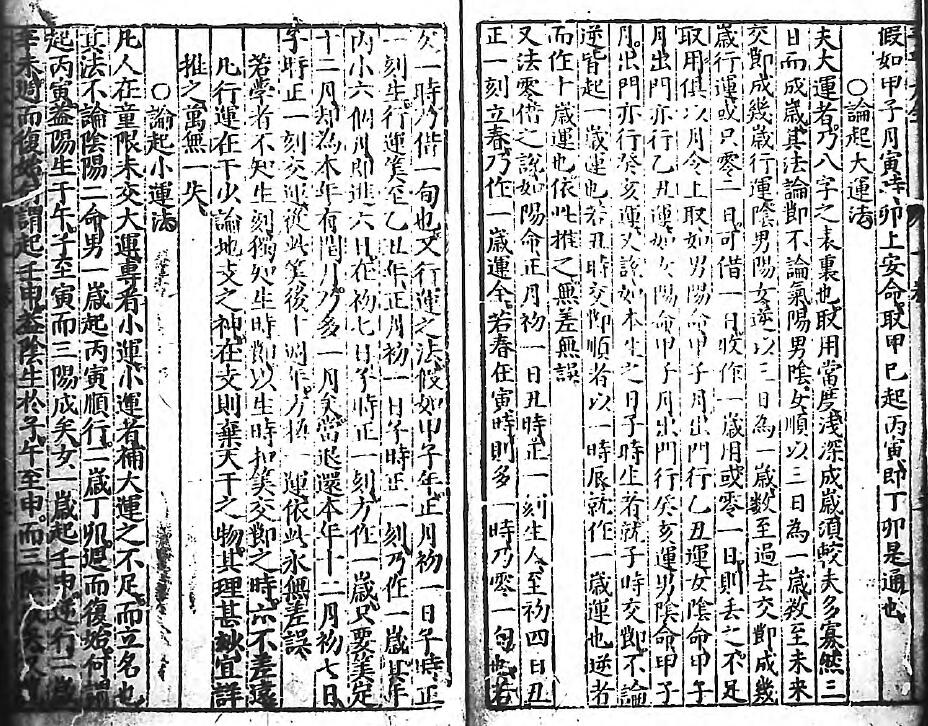 假如甲子月寅時卯上安命取甲巳起丙寅即丁卯是通也
○論起大運法
夫大運者乃八字之表裏也取用當度淺深成歲須較夫多寡然三
日而成歲其法論節不論氣陽男陰女順以三日為一歲数至未來
交節成幾歲行運陰男陽女逆以三日為一歲数至過去交節成幾
歲行運或只零二日可借一日收作一歲用或零一日則丢之不足
取用俱以月令上取如男陽命甲子月出門行乙丑運女陰命甲子
月出門亦行乙丑運如女陽命甲子月出門行癸亥運男陰命甲子
月出門亦行癸亥運又說如本生之日子時生者就子時交節不論
逆皆起一歲運也若丑時交節順者以一時辰就作一歲運也逆者
而作十歲運也依此推之無差無誤
又法零借之說如陽命正月初一日丑時正一刻生人至初四日丑
正一刻立春乃作一歲運全若春在寅時則多一時乃零一旬也若
欠一時乃借一旬也又行運之法假如甲子年正月初一日子時正
一刻生行運筭至乙丑年正月初一日子時正一刻乃作一歲其年
內小六個月即進六日在初七日子時正一刻方作一歲只要筭定
十二月却為本年有閏月乃多一月矣當退還本年十二月初七日
子時正一刻交運從此筭後十週年方換一運依此永無差誤
若學者不知生刻獨知生時節以生時扣筭交節之時六不差遠
凡行運在干少論地支之神在支則棄天干之物其理甚秘宜詳
推之萬無一失
○論起小運法
凡人在童限未交大運專看小運小運者補大運之不足而立名也
其法不論陰陽二命男一歲起丙寅順行二歲丁卯週而復始何謂
起丙寅蓋陽生于子子至寅而三陽成矣女一歲起壬申逆行二歲
辛未週而復始何謂起壬申蓋陰生於午午至申而三陰